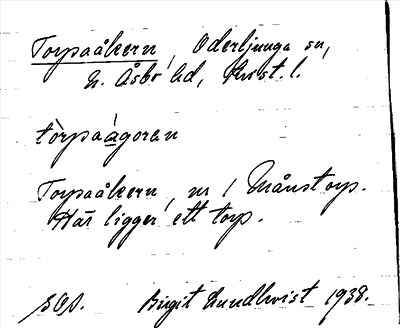 Torpaåkern, Oderljunga sn,
N. Åsbo hd, Krist. l.
tòrpaágoran
Torpaåkern, nr 1 Månstorp.
Här ligger ett torp.
Birgit Lundkvist 1938.